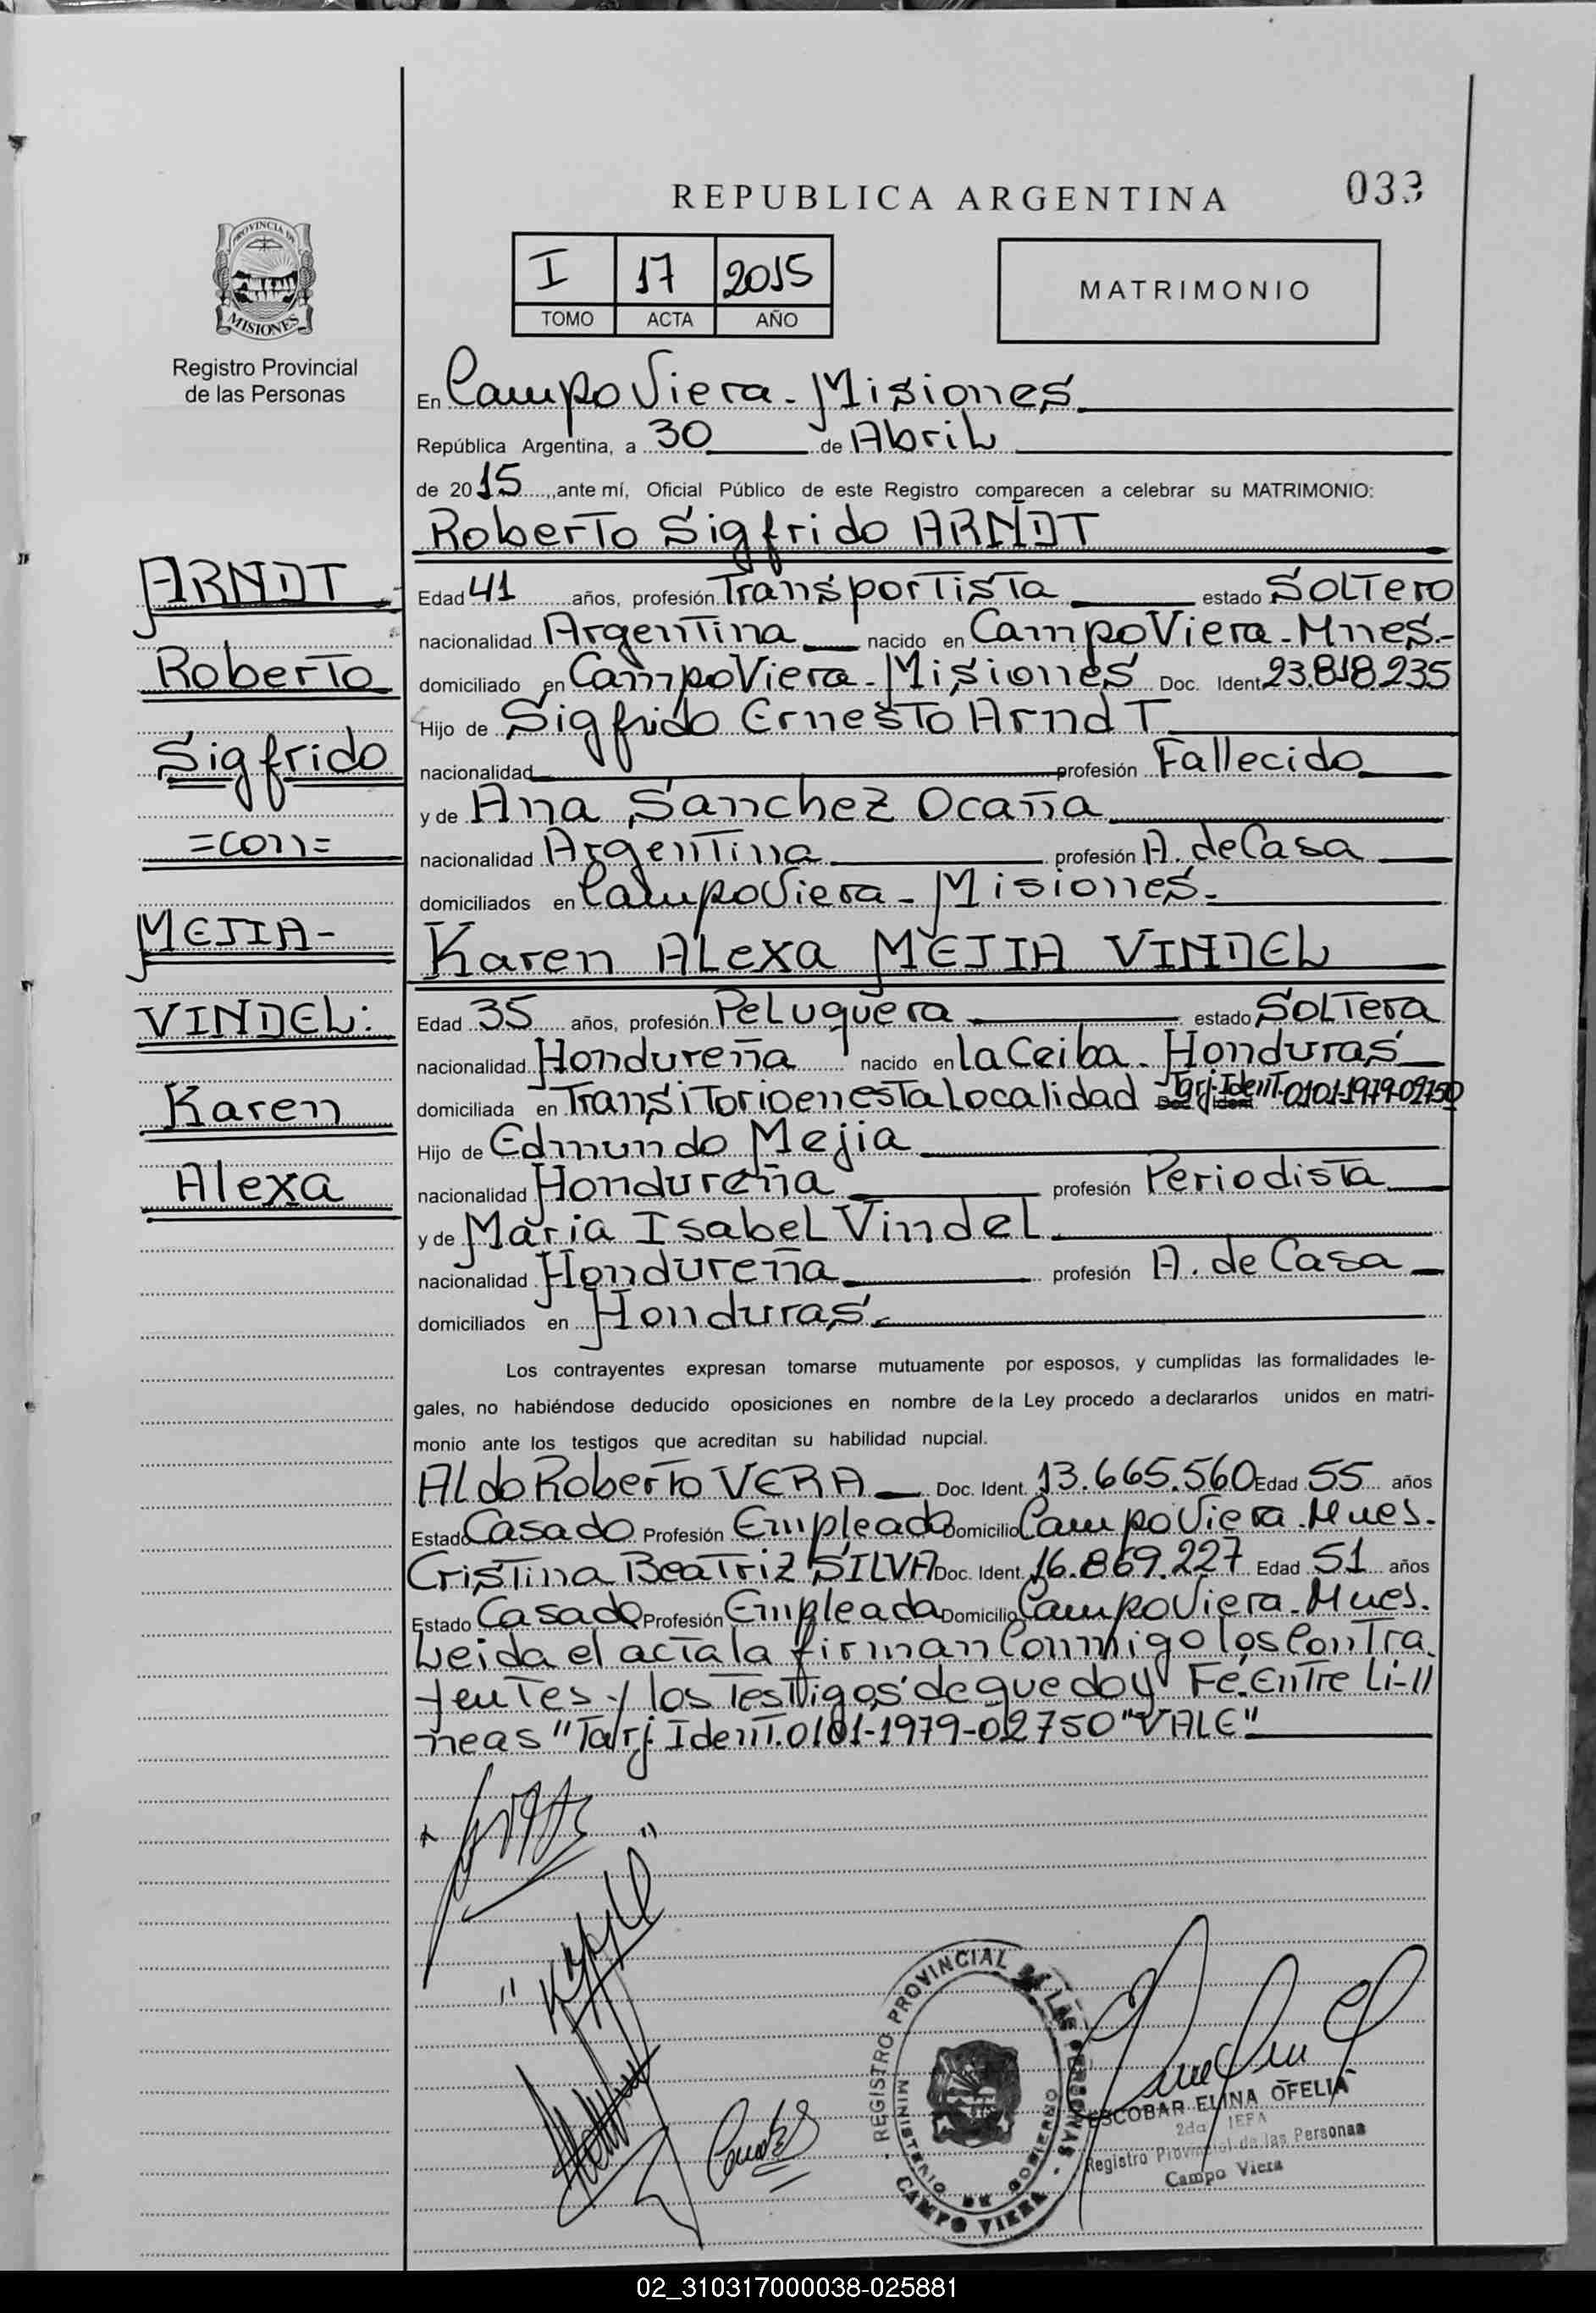 REPUBLICA ARGENTINA
033
PROVINCIA DE
MISIONES
Registro Provincial
de las Personas
I 17 2015
TOMO ACTA AÑO
MATRIMONIO
En Campo Viera - Misiones
República Argentina, a 30 de Abril
de 2015, ante mí, Oficial Público de este Registro comparecen a celebrar su MATRIMONIO:
Roberto Sigfrido ARNDT
Edad 41 años, profesión Transportista estado Soltero
nacionalidad Argentina nacido en Campo Viera - Mnes.-
domiciliado en Campo Viera - Misiones Doc. Ident. 23.818.235
Hijo de Sigfrido Ernesto Arndt
nacionalidad profesión Fallecido
y de Ana Sanchez Ocaña
nacionalidad Argentina profesión A. de Casa
domiciliados en Campo Viera - Misiones.-
Karen Alexa MEJIA VINDEL
Edad 35 años, profesión Peluquera estado Soltera
nacionalidad Hondureña nacido en La Ceiba - Honduras
domiciliada en Transitorio en esta Localidad Doc. Ident. Tarj. Ident. 0101-1979-02750
Hijo de Edmundo Mejia
nacionalidad Hondureña profesión Periodista
y de Maria Isabel Vindel
nacionalidad Hondureña profesión A. de Casa
domiciliados en Honduras.-
Los contrayentes expresan tomarse mutuamente por esposos, y cumplidas las formalidades le-
gales, no habiéndose deducido oposiciones en nombre de la Ley procedo a declararlos unidos en matri-
monio ante los testigos que acreditan su habilidad nupcial.
Aldo Roberto VERA Doc. Ident. 13.665.560 Edad 55 años
Estado Casado Profesión Empleado Domicilio Campo Viera - Mnes.
Cristina Beatriz SILVA Doc. Ident. 16.869.227 Edad 51 años
Estado Casado Profesión Empleada Domicilio Campo Viera - Mnes.
Leida el acta la firman Conmigo los Contra
yentes y los Testigos de que doy Fé. Entre Li-//
neas "Tarj. Ident. 0101-1979-02750 "VALE"
ARNDT
Roberto
Sigfrido
=con=
MEJIA-
VINDEL:
Karen
Alexa
REGISTRO PROVINCIAL DE LAS PERSONAS
MINISTERIO DE GOBIERNO
CAMPO VIERA
ESCOBAR ELINA OFELIA
2da JEFA
Registro Provincial de las Personas
Campo Viera
02_310317000038-025881